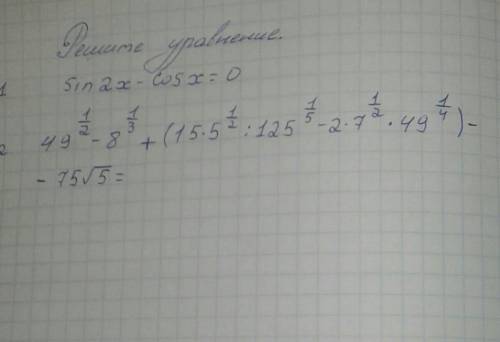 Решите уравнение.
1 sin2x - cosx = 0
2 49^{1/2} - 8^{1/3} + (15·5^{1/2} : 125^{1/5} - 2·7^{1/2} · 49^{1/4}) -
- 75√5 =